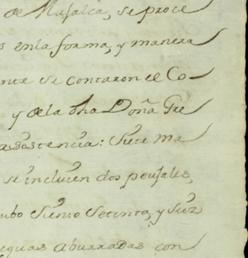 de Masalca, se proce
s en la forma, y manera
nte se contaron el Co
y de la dha Doña Ge
asistencia: siete ma
se incluien dos peujales
ubo siento setenta, y seis
eguas aburradas con